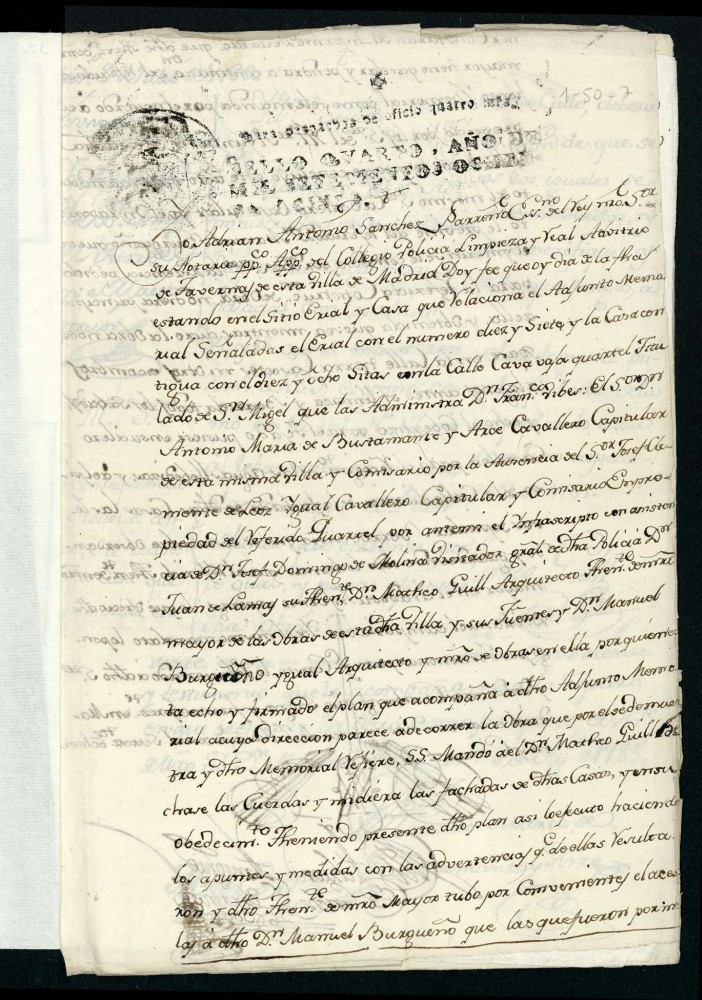 1-50-7
Para despachos de oficio quatro mrs.
SELLO QVARTO, AÑO DE
MIL SETECIENTOS OCHEN
TA Y CINCO.
Yo Adrian Antonio Sanchez Barrena Essno. del Rey nro. Sor
su Notario ppco. Appco del Collegio Policia Limpieza y Real Advitrio
de Tavernas de esta Villa de Madrid Doy fee que oy dia de la fha
estando en el Sitio Erial y Casa que relaciona el Adjunto Memo
rial Señaladas el Erial con el numero diez y Siete y la Casa con
tigua con el diez y ocho Sitas en la Calle Cava vaja quartel Tras
lado de Sn Migel que las Administra Dn Franco. Ribes: El Sor Dn
Antonio Maria de Bustamante y Arce Cavallero Capitular
de esta misma Villa y Comisario por la Ausencia del Sor Josef Cle-
mente de Leoz Ygual Cavallero Capitular y Comisario Enpro-
piedad del Referido Quartel por antemi el Ynfrascripto con asisten
cia de Dn Josef Domingo de Molina Visitador gral. de dha Policia Dn
Juan de Lamas su Thente. Dn Matheo Guill Arquitecto Thente de mro
mayor de las Obras de esta dha Villa y sus Fuentes y Dn Manuel
Burgueño ygual Arquitecto y mro de obras en ella, por quien es
ta echo y firmado el plan que acompaña a dho Adjunto Memo
rial acuya direccion parece a de correr la obra que por el se demues
tra y dho Memorial Refiere, S.S. Mandó a el Dn Matheo Guill
chase las Cuerdas y midiera las fachadas de dhas Casas, y en su
obedecimto. Theniendo presente dho plan asi lo efecuto haciendo
los apuntes y medidas con las advertencias qe. de ellas Resulta-
ron y dho Thente de mro Mayor tubo por Convenientes el aces
las a dho Dn Manuel Burgueño que las que fueron por me